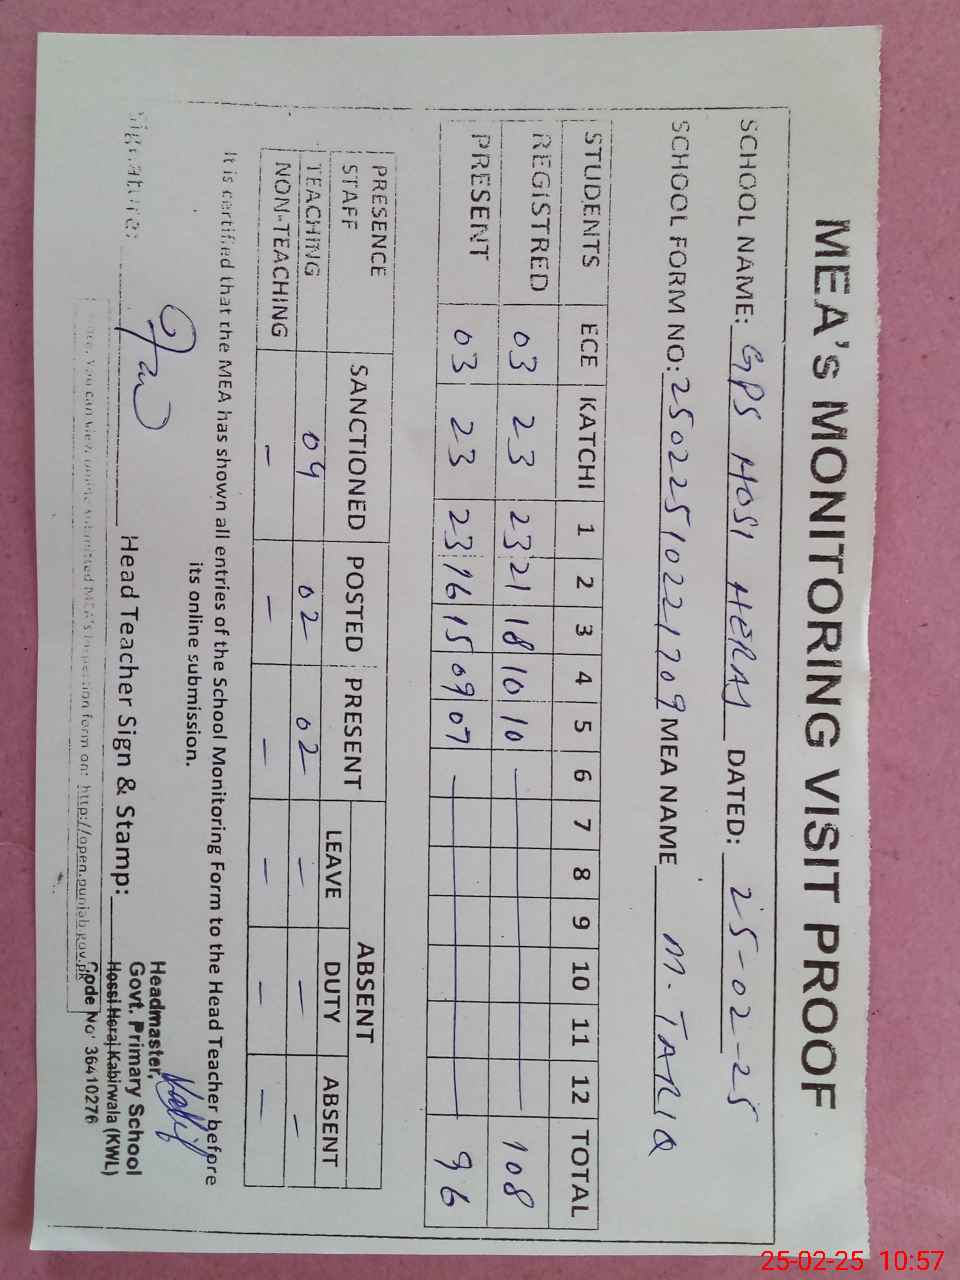 MEA's MONITORING VISIT PROOF
SCHOOL NAME: GPS HOSI HERAJ DATED: 25-02-25
SCHOOL FORM NO: 25022510221709 MEA NAME M. TARIQ
STUDENTS ECE KATCHI 1 2 3 4 5 6 7 8 9 10 11 12 TOTAL
REGISTRED 03 23 23 21 18 10 10 — 108
PRESENT 03 23 23 16 15 09 07 — 96
PRESENCE STAFF SANCTIONED POSTED PRESENT ABSENT
LEAVE DUTY ABSENT
TEACHING 09 02 02 — — —
NON-TEACHING — — — — — —
It is certified that the MEA has shown all entries of the School Monitoring Form to the Head Teacher before
its online submission.
Signature: Head Teacher Sign & Stamp:
Headmaster,
Govt. Primary School
Hossi Heraj Kabirwala (KWL)
Code No' 36410276
You can view online submitted MEA's inspection form on: http://open.punjab.gov.pk
25-02-25 10:57